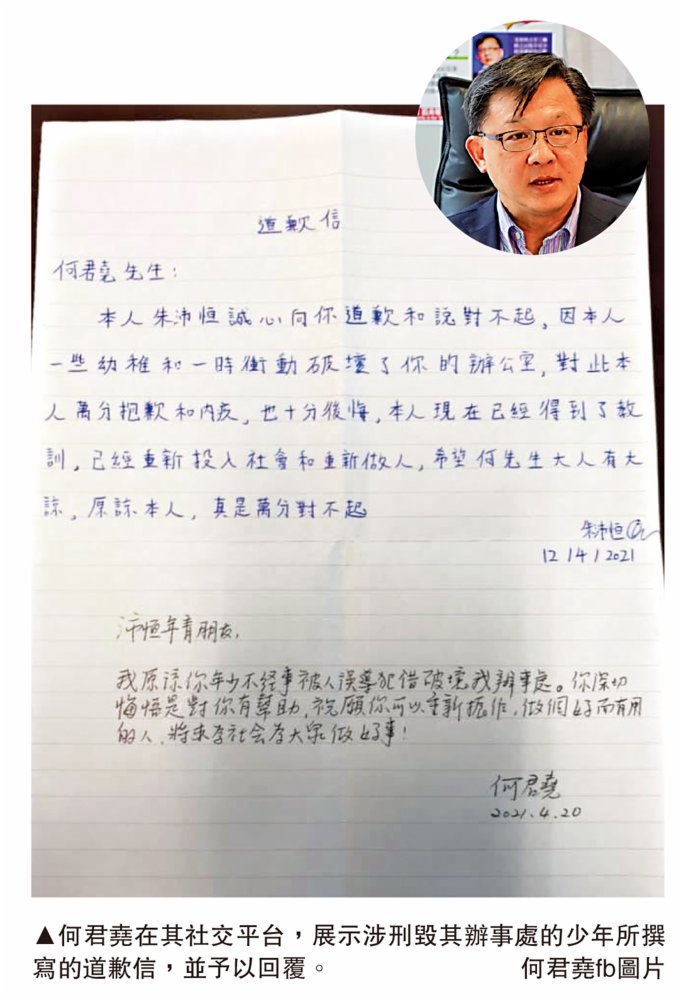 道歉信
何君堯先生：
本人朱沛恒誠心向你道歉和說對不起，因本人
一些幼稚和一時衝動破壞了你的辦公室，對此本
人萬分抱歉和內疚，也十分後悔，本人現在已經得到了教
訓，已經重新投入社會和重新做人，希望何先生大人有大
諒，原諒本人，真是萬分對不起
朱沛恒
12/4/2021
沛恒年青朋友，
我原諒你年少不經事被人誤導犯借破壞我辦事處。你深切
悔悟是對你有幫助，祝願你可以重新振作，做個好而有用
的人，將來為社會為大家做好事！
何君堯
2021.4.20
▲何君堯在其社交平台，展示涉刑毀其辦事處的少年所撰
寫的道歉信，並予以回覆。 何君堯fb圖片